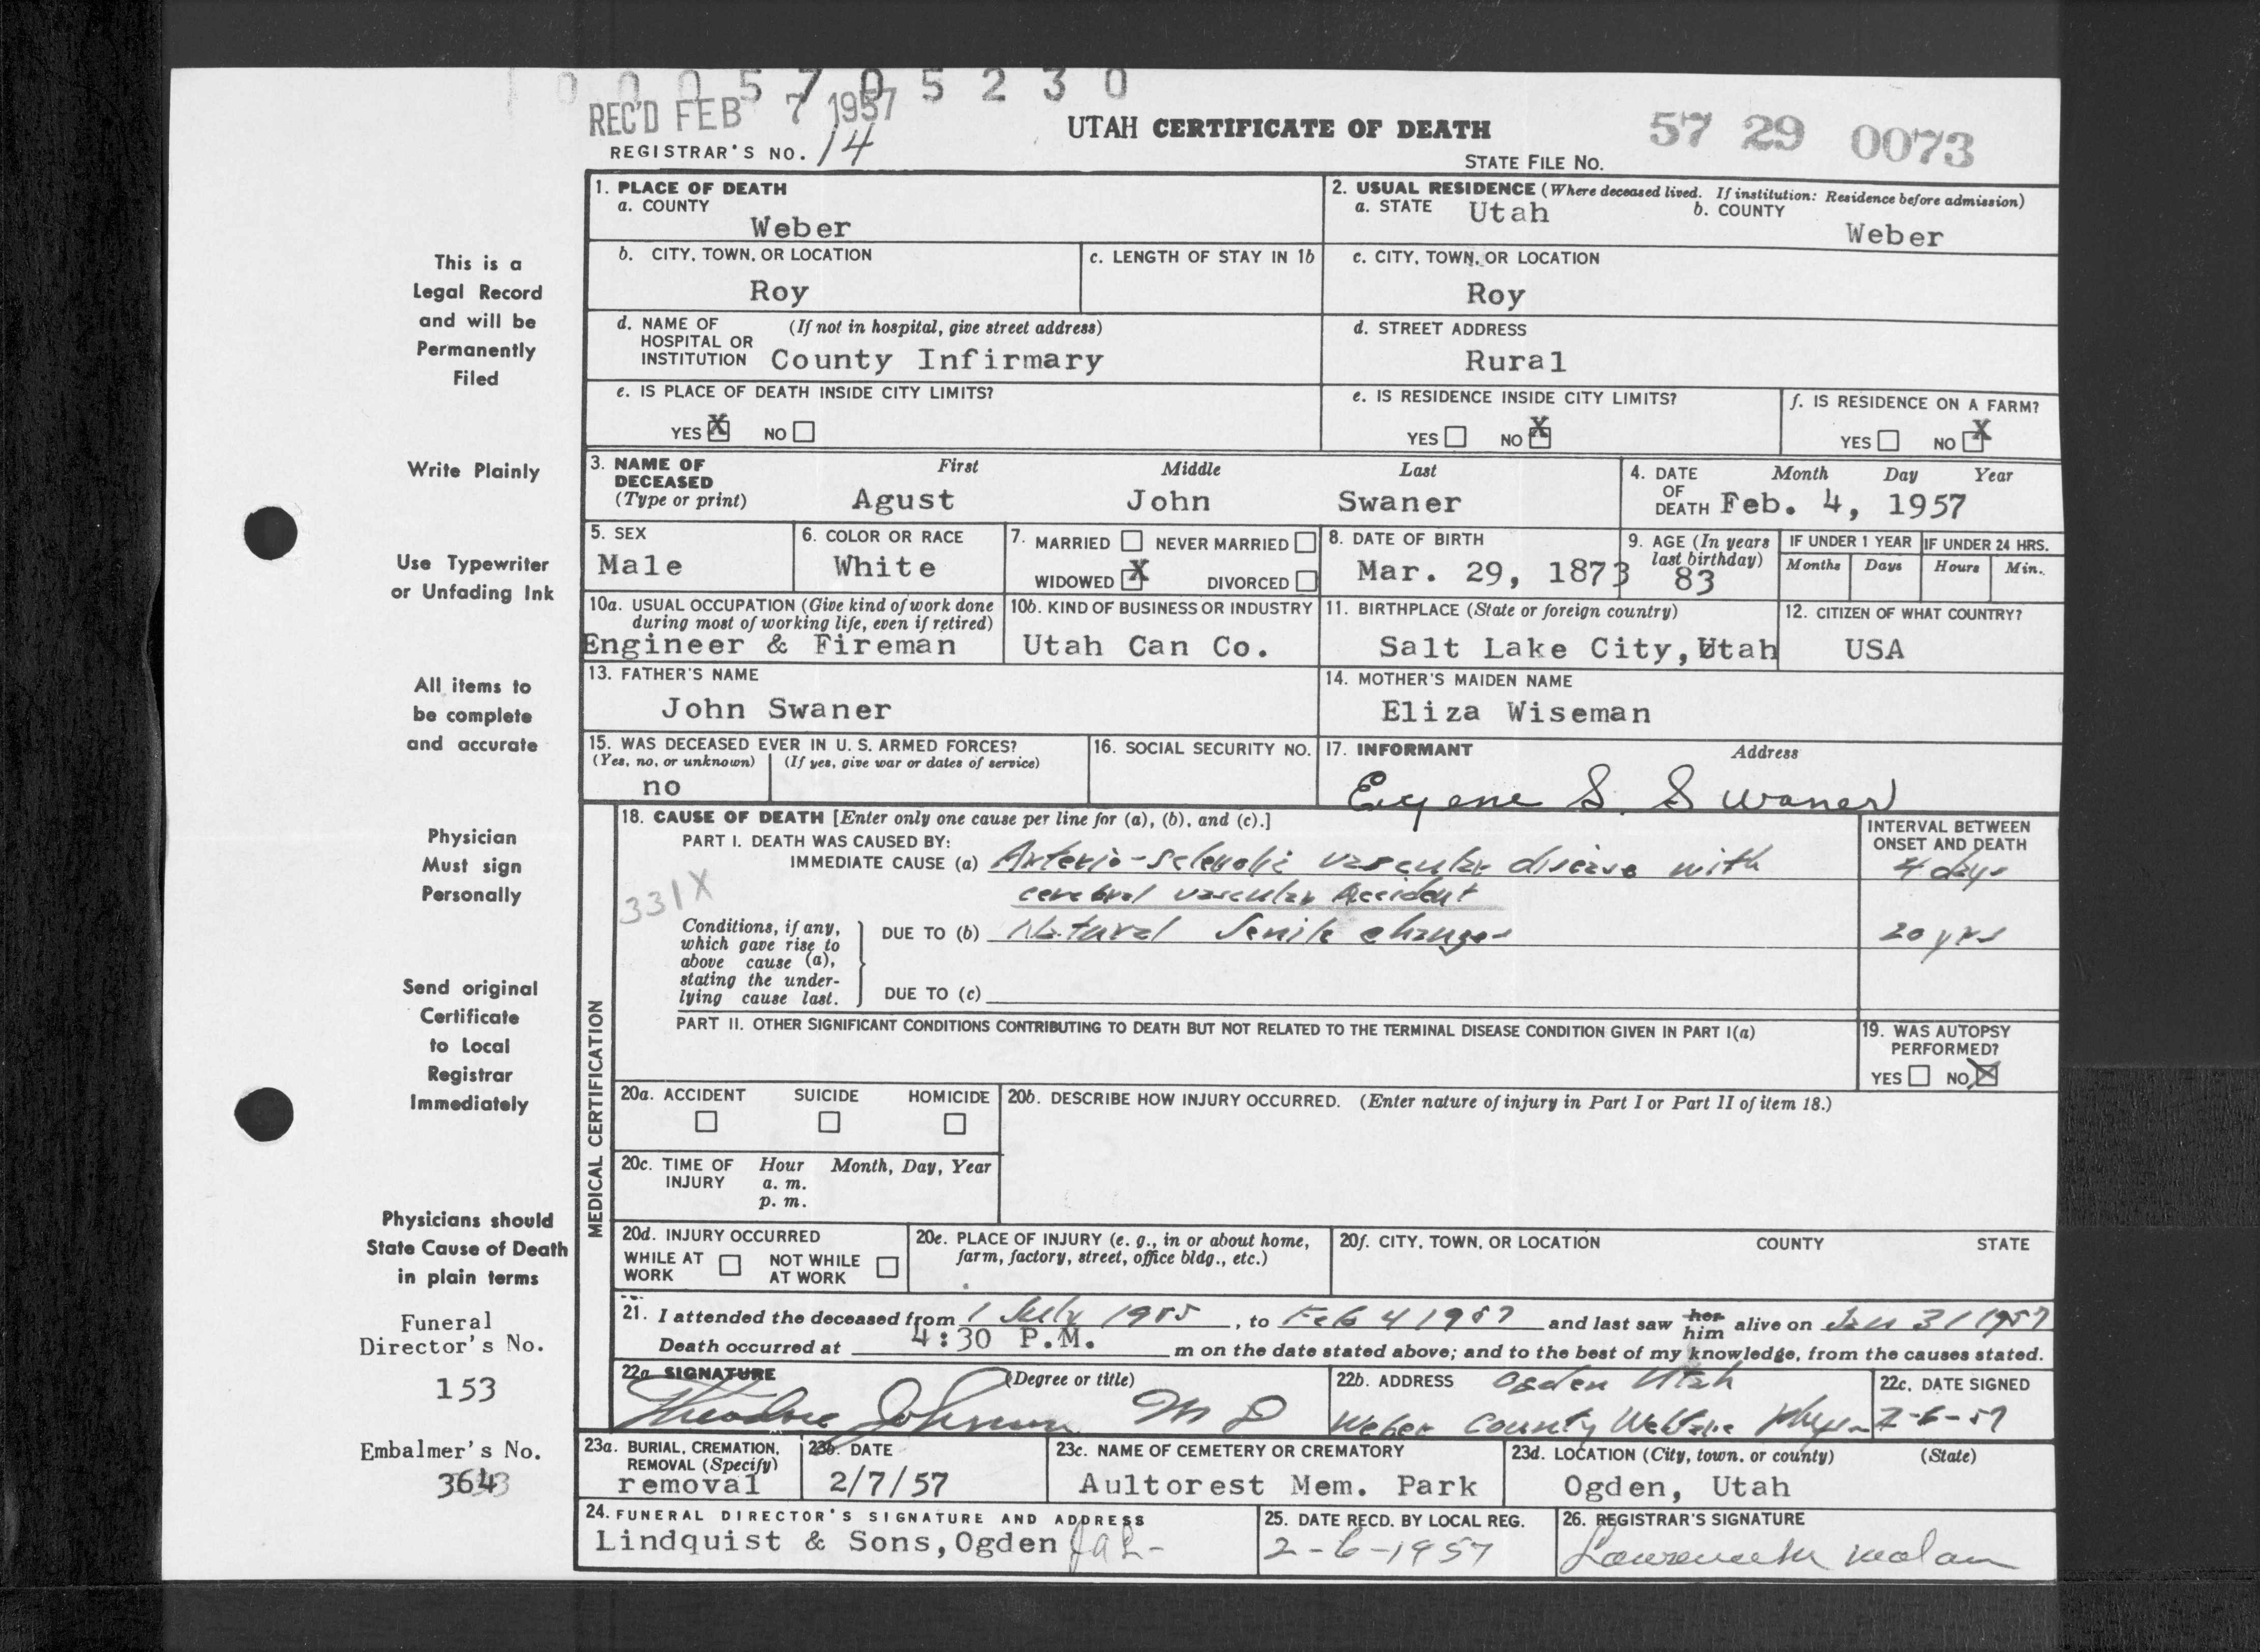 0 0 0 5 7 0 5 2 3 0
REC'D FEB 7 1957
REGISTRAR'S NO. 14
UTAH CERTIFICATE OF DEATH
STATE FILE NO. 57 29 0073
This is a
Legal Record
and will be
Permanently
Filed
Write Plainly
Use Typewriter
or Unfading Ink
All items to
be complete
and accurate
Physician
Must sign
Personally
Send original
Certificate
to Local
Registrar
Immediately
Physicians should
State Cause of Death
in plain terms
Funeral
Director's No.
153
Embalmer's No.
1. PLACE OF DEATH
a. COUNTY
Weber
2. USUAL RESIDENCE (Where deceased lived. If institution: Residence before admission)
a. STATE Utah b. COUNTY
Weber
b. CITY, TOWN, OR LOCATION
Roy
c. LENGTH OF STAY IN 1b
c. CITY, TOWN, OR LOCATION
Roy
d. NAME OF (If not in hospital, give street address)
HOSPITAL OR
INSTITUTION County Infirmary
d. STREET ADDRESS
Rural
e. IS PLACE OF DEATH INSIDE CITY LIMITS?
YES X NO
e. IS RESIDENCE INSIDE CITY LIMITS?
YES NO X
f. IS RESIDENCE ON A FARM?
YES NO X
3. NAME OF First Middle Last
DECEASED
(Type or print) Agust John Swaner
4. DATE Month Day Year
OF
DEATH Feb. 4, 1957
5. SEX
Male
6. COLOR OR RACE
White
7. MARRIED NEVER MARRIED
WIDOWED X DIVORCED
8. DATE OF BIRTH
Mar. 29, 1873
9. AGE (In years
last birthday)
83
IF UNDER 1 YEAR
Months Days
IF UNDER 24 HRS.
Hours Min.
10a. USUAL OCCUPATION (Give kind of work done
during most of working life, even if retired)
Engineer & Fireman
10b. KIND OF BUSINESS OR INDUSTRY
Utah Can Co.
11. BIRTHPLACE (State or foreign country)
Salt Lake City, Utah
12. CITIZEN OF WHAT COUNTRY?
USA
13. FATHER'S NAME
John Swaner
14. MOTHER'S MAIDEN NAME
Eliza Wiseman
15. WAS DECEASED EVER IN U. S. ARMED FORCES?
(Yes, no, or unknown) (If yes, give war or dates of service)
no
16. SOCIAL SECURITY NO.
17. INFORMANT Address
Eugene S. Swaner
MEDICAL CERTIFICATION
18. CAUSE OF DEATH [Enter only one cause per line for (a), (b), and (c).]
INTERVAL BETWEEN
ONSET AND DEATH
PART I. DEATH WAS CAUSED BY:
IMMEDIATE CAUSE (a) Arterio-sclerotic vascular disease with 4 days
cerebral vascular Accident
331X
Conditions, if any,
which gave rise to
above cause (a),
stating the under-
lying cause last.
DUE TO (b) Natural Senile changes 20 yrs
DUE TO (c)
PART II. OTHER SIGNIFICANT CONDITIONS CONTRIBUTING TO DEATH BUT NOT RELATED TO THE TERMINAL DISEASE CONDITION GIVEN IN PART I(a)
19. WAS AUTOPSY
PERFORMED?
YES NO X
20a. ACCIDENT SUICIDE HOMICIDE
20b. DESCRIBE HOW INJURY OCCURRED. (Enter nature of injury in Part I or Part II of item 18.)
20c. TIME OF Hour Month, Day, Year
INJURY a. m.
p. m.
20d. INJURY OCCURRED
WHILE AT NOT WHILE
WORK AT WORK
20e. PLACE OF INJURY (e. g., in or about home,
farm, factory, street, office bldg., etc.)
20f. CITY, TOWN, OR LOCATION COUNTY STATE
21. I attended the deceased from 1 July 1955, to Feb 4 1957 and last saw her him alive on Jan 31 1957
Death occurred at 4:30 P.M. m on the date stated above; and to the best of my knowledge, from the causes stated.
22a. SIGNATURE (Degree or title)
Theodore Johnson M D
22b. ADDRESS Ogden Utah
Weber County Welfare Phys
22c. DATE SIGNED
2-6-57
23a. BURIAL, CREMATION,
REMOVAL (Specify)
removal
23b. DATE
2/7/57
23c. NAME OF CEMETERY OR CREMATORY
Aultorest Mem. Park
23d. LOCATION (City, town, or county) (State)
Ogden, Utah
24. FUNERAL DIRECTOR'S SIGNATURE AND ADDRESS
Lindquist & Sons, Ogden
25. DATE RECD. BY LOCAL REG.
2-6-1957
26. REGISTRAR'S SIGNATURE